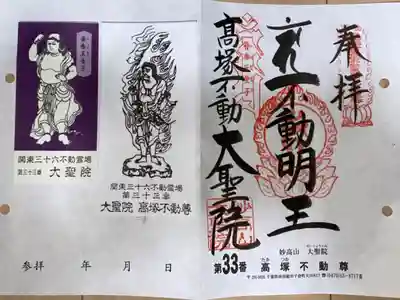 関東三十六不動霊場
第三十三番 大聖院
関東三十六不動霊場
第三十三番
大聖院 高塚不動尊
参拝 年 月 日
奉拝
不動明王
高塚不動 大聖院
妙高山 大聖院
第33番 高塚不動尊